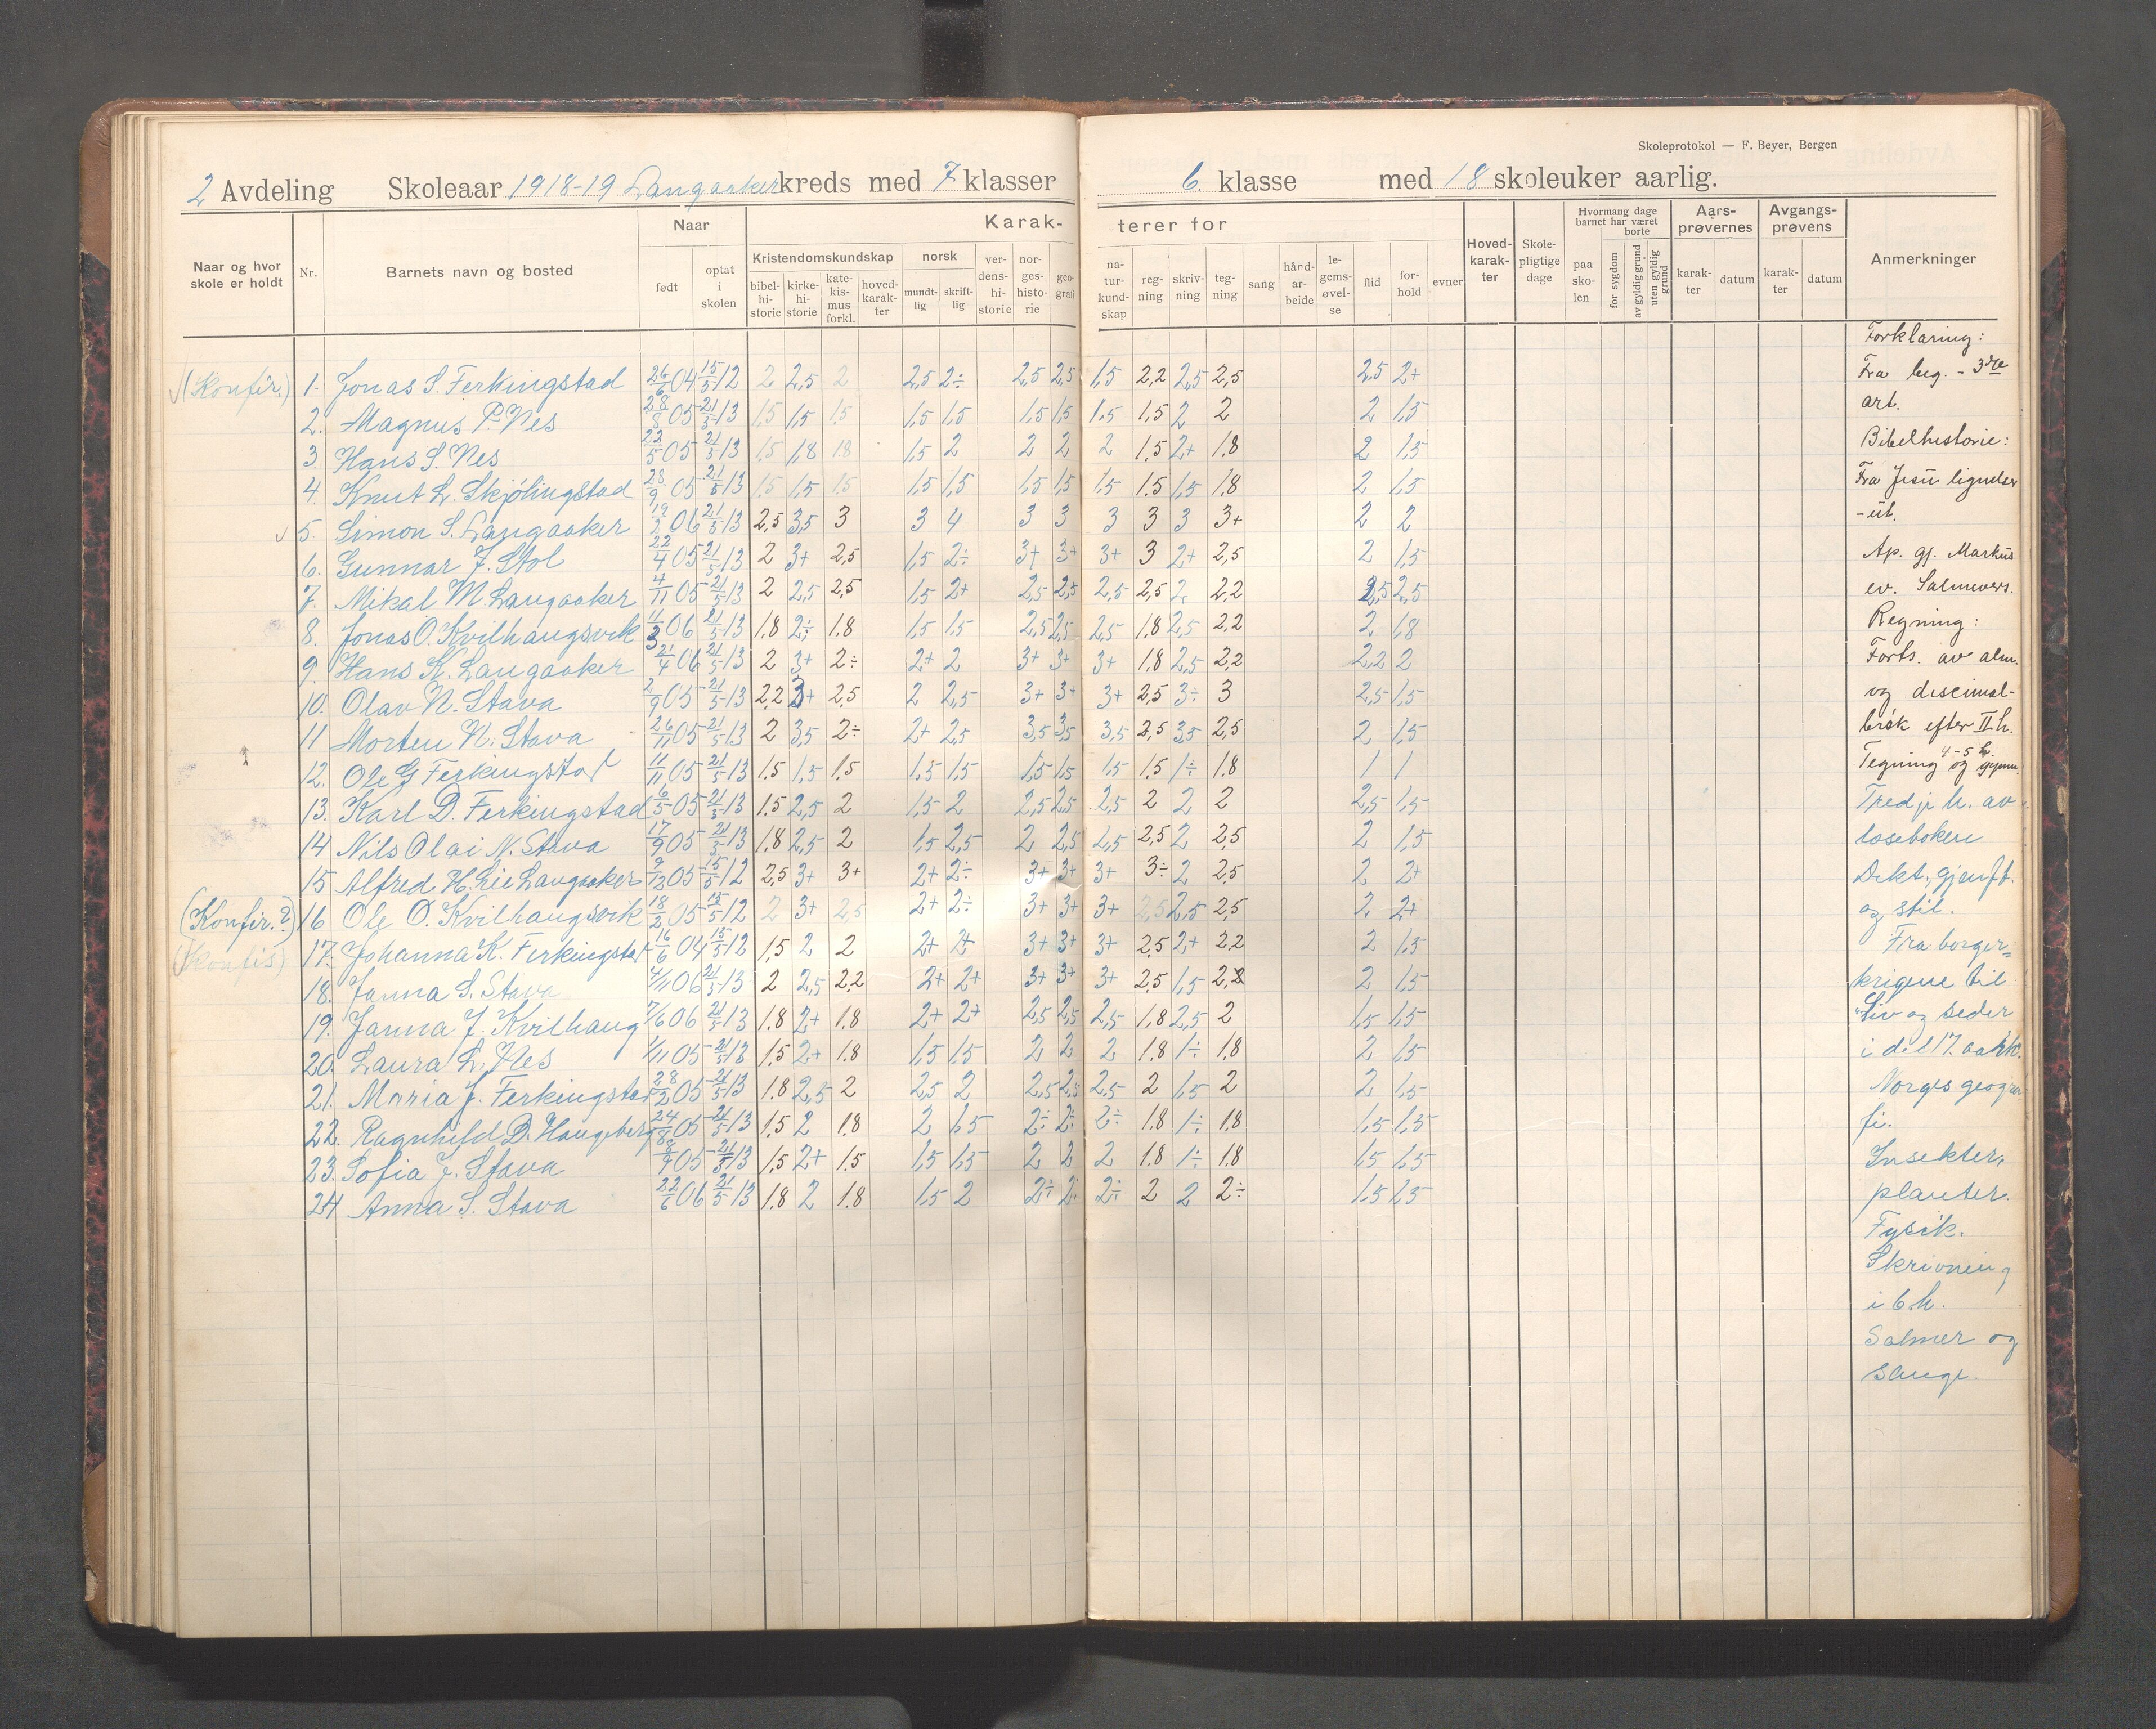 Skoleprotokol — F. Beyer, Bergen
2 Avdeling Skoleaar 1918-19 Langaaker kreds med 7 klasser 6. klasse med 18 skoleuker aarlig.
Naar og hvor skole er holdt Nr. Barnets navn og bosted Naar født optat i skolen Karakterer for Kristendomskundskap bibelhistorie kirkehistorie katekismus forkl. hovedkarakter norsk mundtlig skriftlig verdenshistorie norgeshistorie geografi naturkundskap regning skrivning tegning sang håndarbeide legemsøvelse flid forhold evner Hovedkarakter Skolepligtige dage Hvormang dage barnet har været borte paa skolen for sygdom av gyldig grund uten gyldig grund Aarsprøvernes karakter datum Avgangsprøvens karakter datum Anmerkninger
(Konfir.) 1. Jonas S. Ferkingstad 26/6 04 15/5 12 2 2,5 2 2,5 2÷ 2,5 2,5 1,5 2,2 2,5 2,5 2,5 2+
2. Magnus P. Nes 28/8 05 21/5 13 1,5 1,5 1,5 1,5 1,5 1,5 1,5 1,5 1,5 2 2 2 1,5
3. Hans S. Nes 22/5 05 21/5 13 1,5 1,8 1,8 1,5 2 2 2 2 1,5 2+ 1,8 2 1,5
4. Knut L. Skjölingstad 28/9 05 21/5 13 1,5 1,5 1,5 1,5 1,5 1,5 1,5 1,5 1,5 1,5 1,8 2 1,5
5. Simon S. Langaaker 06 21/5 13 2,5 3,5 3 3 4 3 3 3 3 3 3+ 2 2
6. Gunnar J. Stol 22/4 05 21/5 13 2 3+ 2,5 1,5 2÷ 3+ 3+ 3+ 3 2+ 2,5 2 1,5
7. Mikal M. Langaaker 4/11 05 21/5 13 2 2,5 2,5 1,5 2+ 2,5 2,5 2,5 2,5 2. 2,2 2,5 2,5
8. Jonas O. Kvilhaugsvik 11/3 06 21/5 13 1,8 2÷ 1,8 1,5 1,5 2,5 2,5 2,5 1,8 2,5 2,2 2 1,8
9. Hans K. Langaaker 21/4 06 21/5 13 2 3+ 2÷ 2+ 2 3+ 3+ 3+ 1,8 2,5 2,2 2,2 2
10. Olav N. Stava 2/9 05 21/5 13 2,2 3+ 2,5 2 2,5 3+ 3+ 3+ 2,5 3÷ 3 2,5 1,5
11 Morten N. Stava 26/11 05 21/5 13 2 3,5 2÷ 2+ 2,5 3,5 3,5 3,5 2,5 3,5 2,5 2 1,5
12. Ole G Ferkingstad 11/11 05 21/5 13 1,5 1,5 1,5 1,5 1,5 1,5 1,5 1,5 1,5 1÷ 1,8 1 1
13. Karl D. Ferkingstad 6/5 05 21/5 13 1,5 2,5 2 1,5 2 2,5 2,5 2,5 2 2 2 2,5 1,5
14 Nils Olai N. Stava 17/9 05 21/5 13 1,8 2,5 2 1,5 2,5 2 2,5 1,5 2,5 2 2,5 2 1,5
15 Alfred H. Lie Langaaker 9/12 05 15/5 12 2,5 3+ 3+ 2+ 2÷ 3+ 3+ 3+ 3÷ 2 2,5 2 2+
(Konfir.?) 16 Ole O. Kvilhaugsvik 18/2 05 15/5 12 2 3+ 2,5 2+ 2÷ 3+ 3+ 3+ 2,5 2,5 2,5 2 2+
(Konfis) 17. Johanna K. Ferkingstad 16/6 04 15/5 12 1,5 2 2 2+ 2+ 3+ 3+ 3+ 2,5 2+ 2,2 2 1,5
18. Janna S. Stava 4/11 06 21/5 13 2 2,5 2,2 2+ 2+ 3+ 3+ 3+ 2,5 1,5 2,2 2 1,5
19. Janna J. Kvilhaug 7/6 06 21/5 13 1,8 2+ 1,8 2+ 2+ 2,5 2,5 2,5 1,8 2,5 2 1,5 1,5
20. Laura L. Nes 1/11 05 21/5 13 1,5 2+ 1,8 1,5 1,5 2 2 2 1,8 1÷ 1,8 2 1,5
21. Maria J. Ferkingstad 28/2 05 21/5 13 1,8 2,5 2 2,5 2 2,5 2,5 2,5 2 1,5 2 2 1,5
22. Ragnhild D. Haugeberg 24/8 05 21/5 13 1,5 2 1,8 2 1,5 2÷ 2÷ 2÷ 1,8 1÷ 1,8 1,5 1,5
23. Sofia J. Stava 8/9 05 21/5 13 1,5 2+ 1,5 1,5 1,5 2 2 2 1,8 1÷ 1,8 1,5 1,5
24 Anna S. Stava 22/6 06 21/5 13 1,8 2 1,8 1,5 2 2÷ 2÷ 2÷ 2 2 2÷ 1,5 1,5
Forklaring:
Fra beg. - 3dje
art.
Bibelhistorie:
Fra Jesu lignelser
- ut.
Ap. gj. Markus
ev. Salmevers.
Regning:
Forts. av alm.
og descimal-
brøk efter II h.
Tegning 4-5 h. og gymn.
Tredje h. av
læseboken
Dikt, gjenft.
og stil.
Fra borger-
krigene til
"Liv og seder
i det 17. aarh.
Norges geogra
fi.
Insekter,
planter.
Fysik.
Skrivning
i 6 h.
Salmer og
sange.